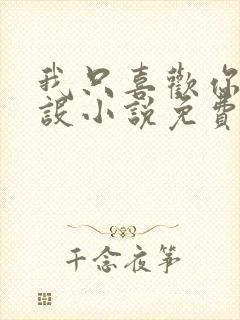 我只喜歡你
設小說免費
千念夜箏